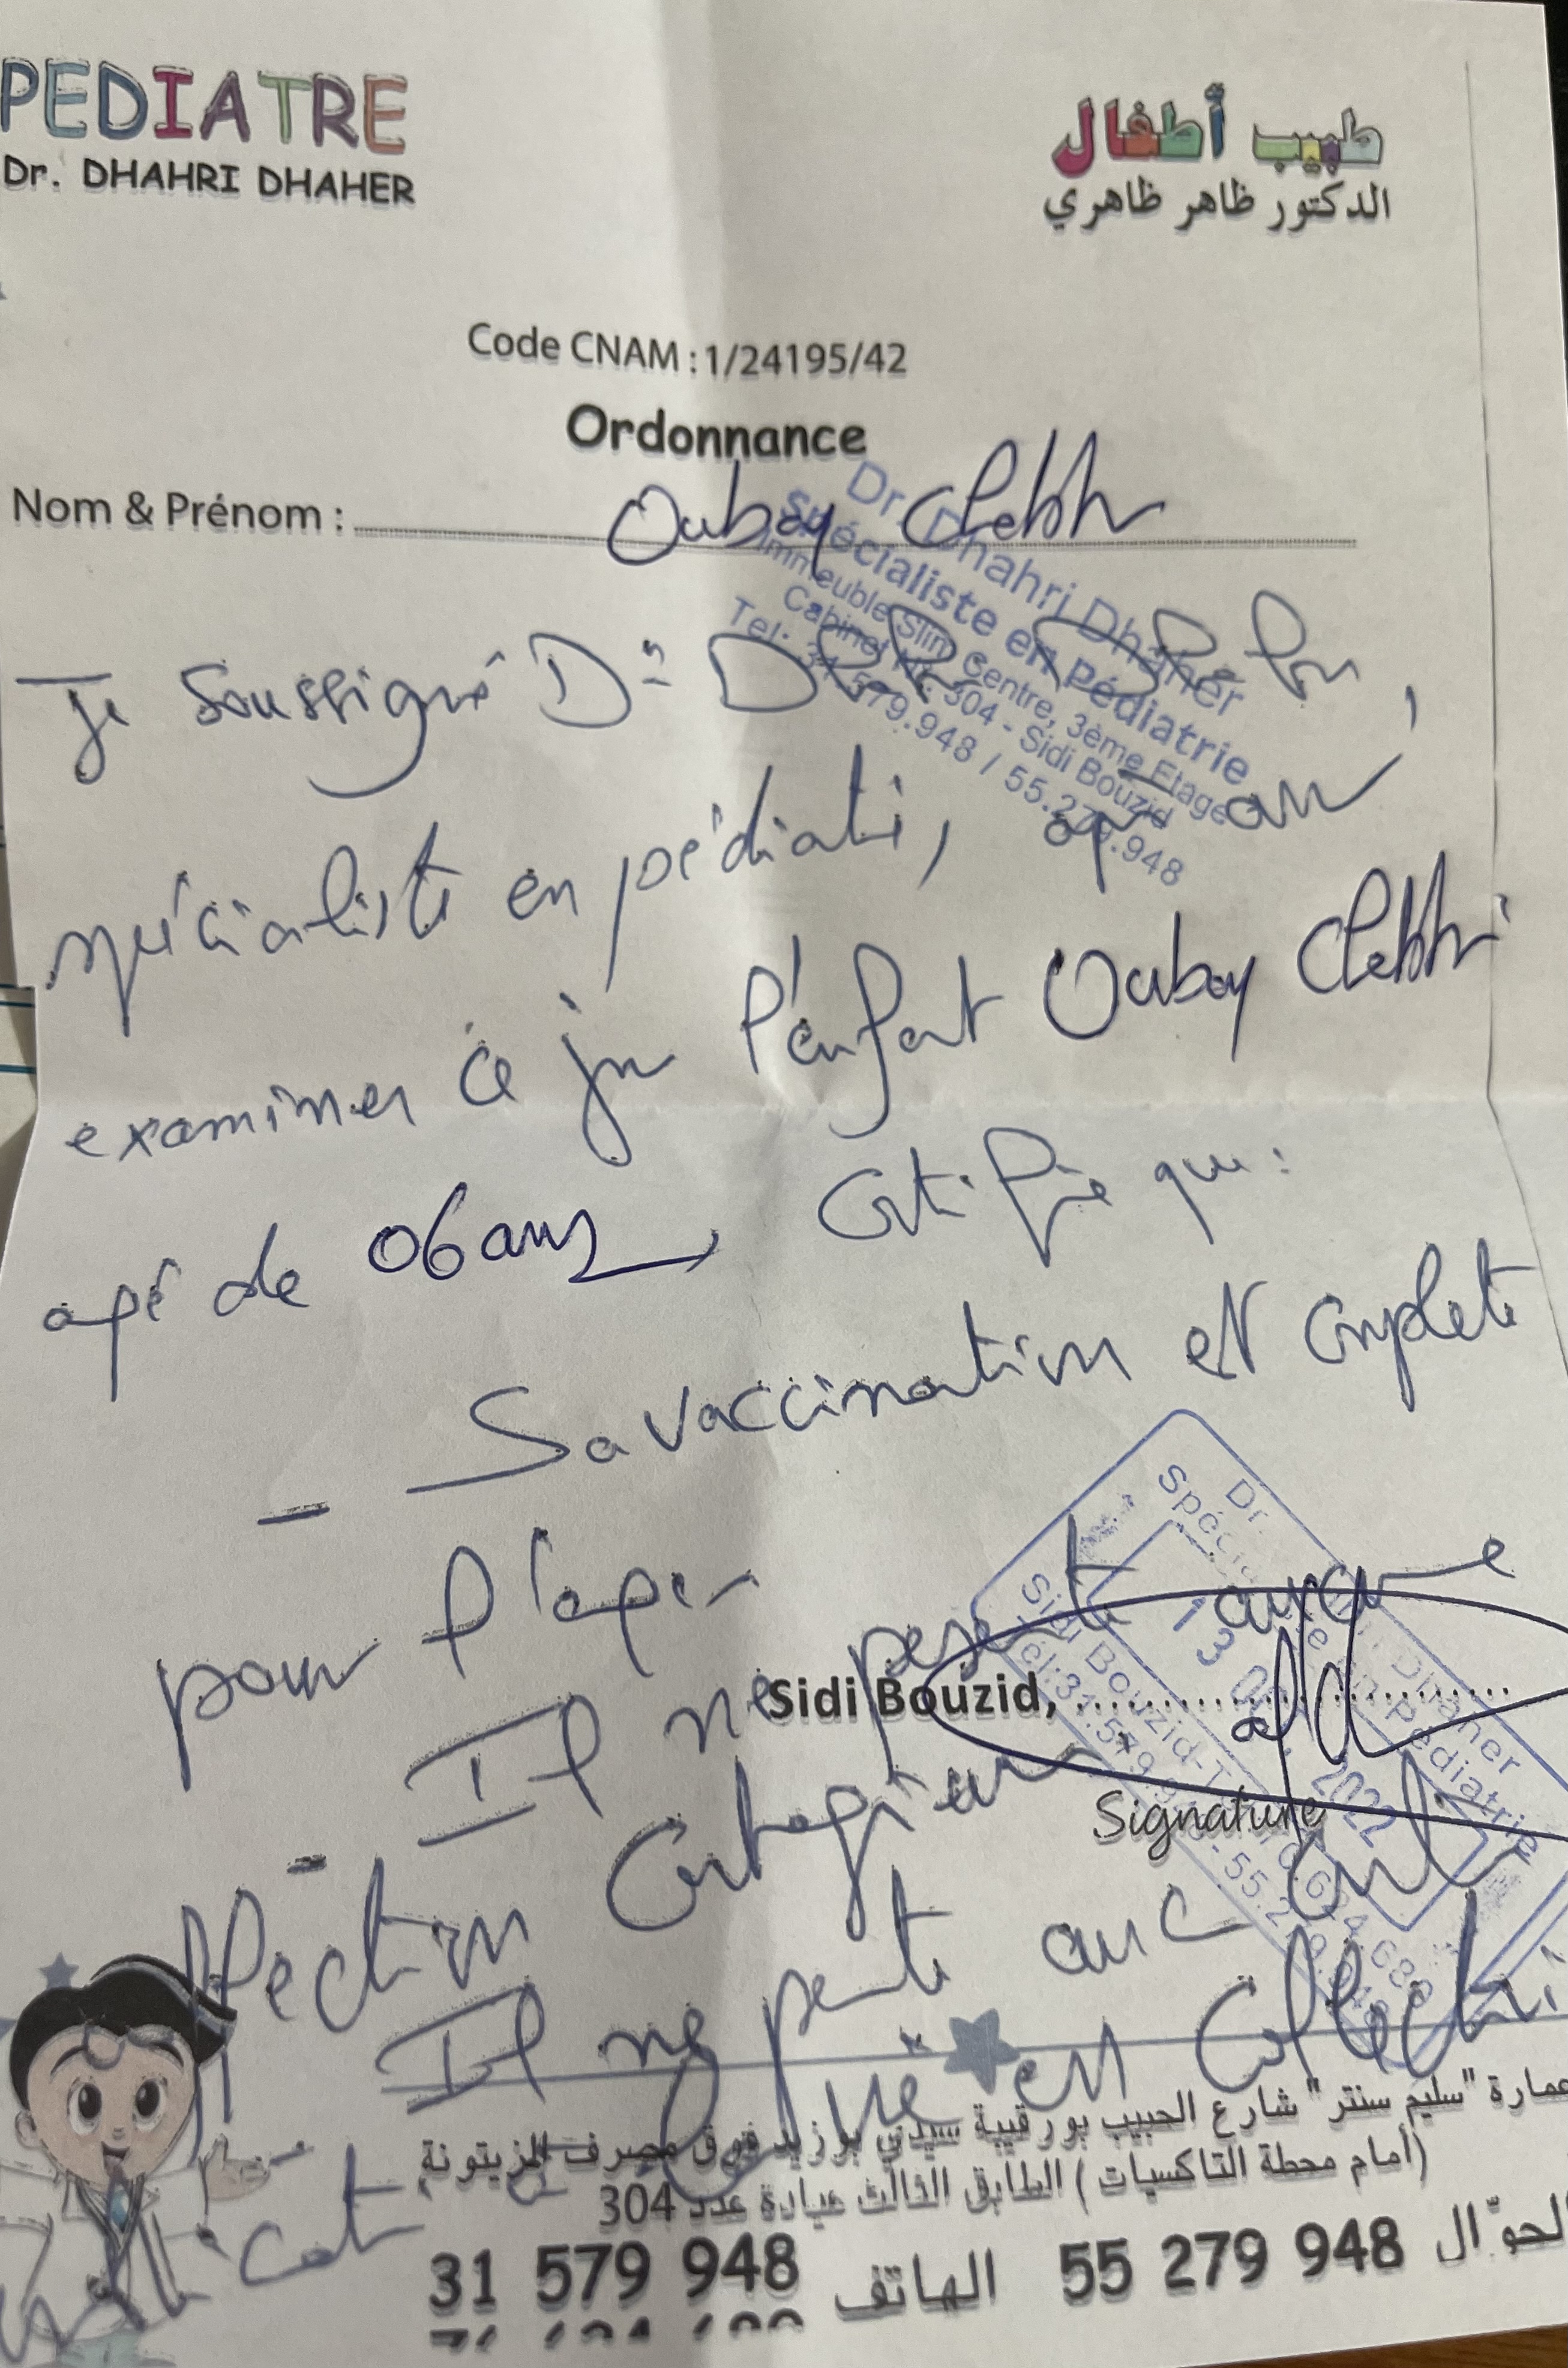 PEDIATRE
Dr. DHAHRI DHAHER
طبيب أطفال
الدكتور ظاهر ظاهري
Code CNAM : 1/24195/42
Ordonnance
Nom & Prénom : Oubay Chebbi
Dr. Dhahri Dhaher
Spécialiste en Pédiatrie
Immeuble Slim Centre, 3ème Etage
Cabinet N° 304 - Sidi Bouzid
Tel: 31.579.948 / 55.279.948
Je soussigné Dr
spécialiste en pédiatrie, après avoir
examiner ce jour l'enfant Oubay Chebbi
agé de 06 ans, certifie que :
- Sa vaccination est complete
pour l'age
- Il ne presente aucune
affection contagieuse
Il ne presente aucune contre
indication à la vie en collectivité
Sidi Bouzid,
Signature
13 2022
Dr. Dhahri Dhaher
Spécialiste en Pédiatrie
عمارة "سليم سنتر" شارع الحبيب بورقيبة سيدي بوزيد فوق مصرف الزيتونة
(أمام محطة التاكسيات) الطابق الثالث عيادة عدد 304
الهاتف 31 579 948
الجوّال 55 279 948